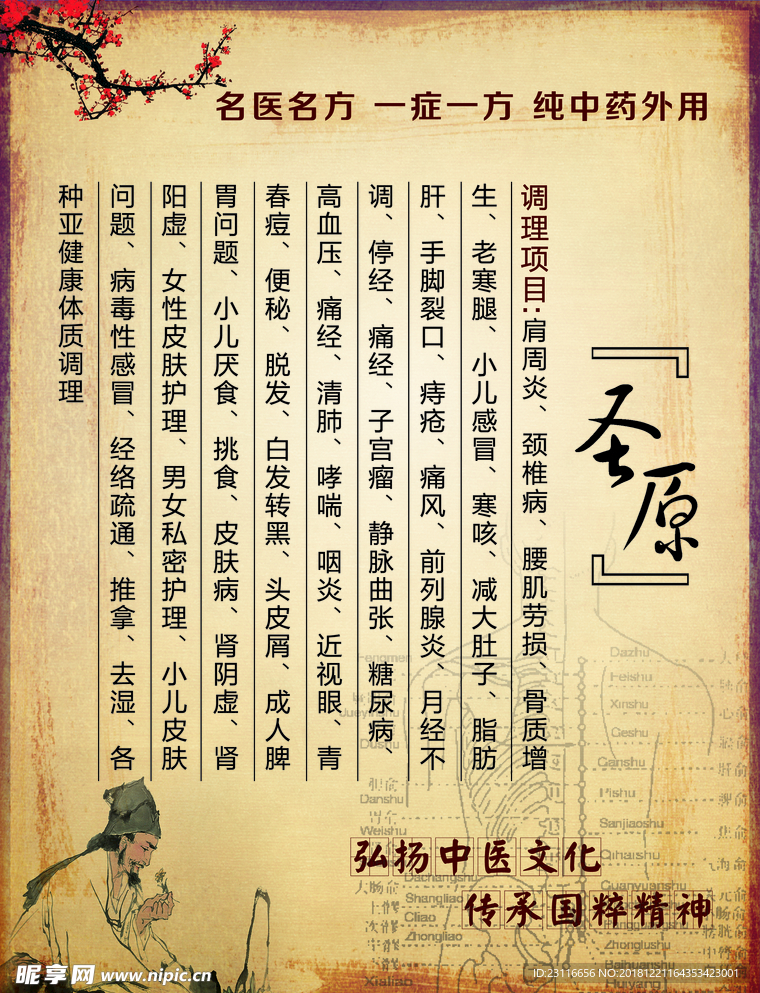 名医名方 一症一方 纯中药外用
『圣原』
调理项目:肩周炎、颈椎病、腰肌劳损、骨质增
生、老寒腿、小儿感冒、寒咳、减大肚子、脂肪
肝、手脚裂口、痔疮、痛风、前列腺炎、月经不
调、停经、痛经、子宫瘤、静脉曲张、糖尿病、
高血压、痛经、清肺、哮喘、咽炎、近视眼、青
春痘、便秘、脱发、白发转黑、头皮屑、成人脾
胃问题、小儿厌食、挑食、皮肤病、肾阴虚、肾
阳虚、女性皮肤护理、男女私密护理、小儿皮肤
问题、病毒性感冒、经络疏通、推拿、去湿、各
种亚健康体质调理
Fengmen
Dazhu
Feishu
Jueyinshu
Xinshu
Dushu
Geshu
Ganshu
Danshu
Pishu
Weishu
Sanjiaoshu
Qihaishu
Dachangshu
Guanyuanshu
Shangliao
Ciliao
Zhongliao
Zhonglushu
Baihuanshu
Xialiao
弘扬中医文化
传承国粹精神
昵享网 www.nipic.cn
ID:23116656 NO:20181221164353423001